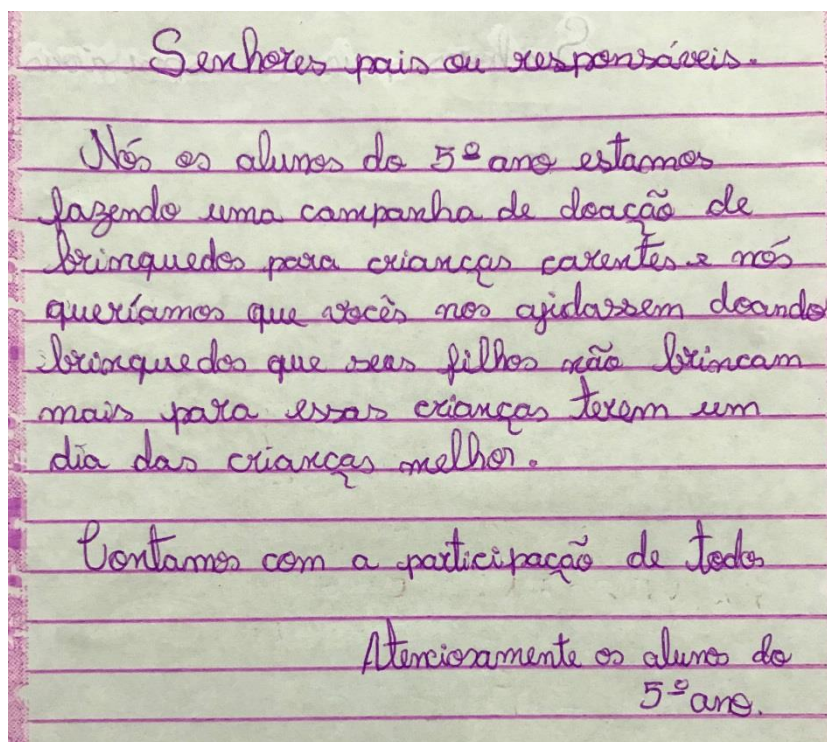 Senhores pais ou responsáveis.
Nós os alunos do 5º ano estamos
fazendo uma campanha de doação de
brinquedos para crianças carentes e nós
queríamos que vocês nos ajudassem doando
brinquedos que seus filhos não brincam
mais para essas crianças terem um
dia das crianças melhor.
Contamos com a participação de todos
Atenciosamente os alunos do
5º ano.